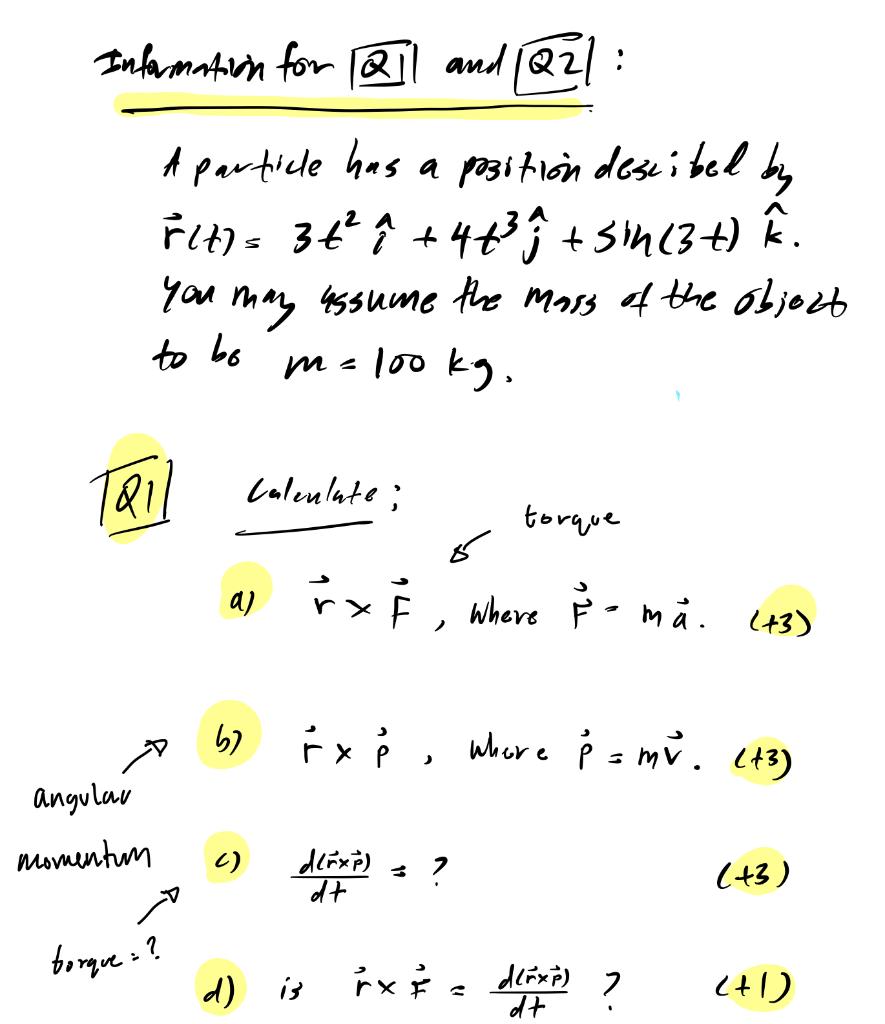 Information for Q1 and Q2 :
A particle has a position described by
r⃗(t) = 3t² î + 4t³ ĵ + sin(3t) k̂.
You may assume the mass of the object
to be m = 100 kg.
Q1 Calculate ;
torque
a) r⃗ × F⃗ , where F⃗ = m a⃗. (+3)
b) r⃗ × p⃗ , where p⃗ = m v⃗. (+3)
angular
momentum
c) d(r⃗×p⃗)/dt = ? (+3)
torque = ?
d) is r⃗ × F⃗ = d(r⃗×p⃗)/dt ? (+1)